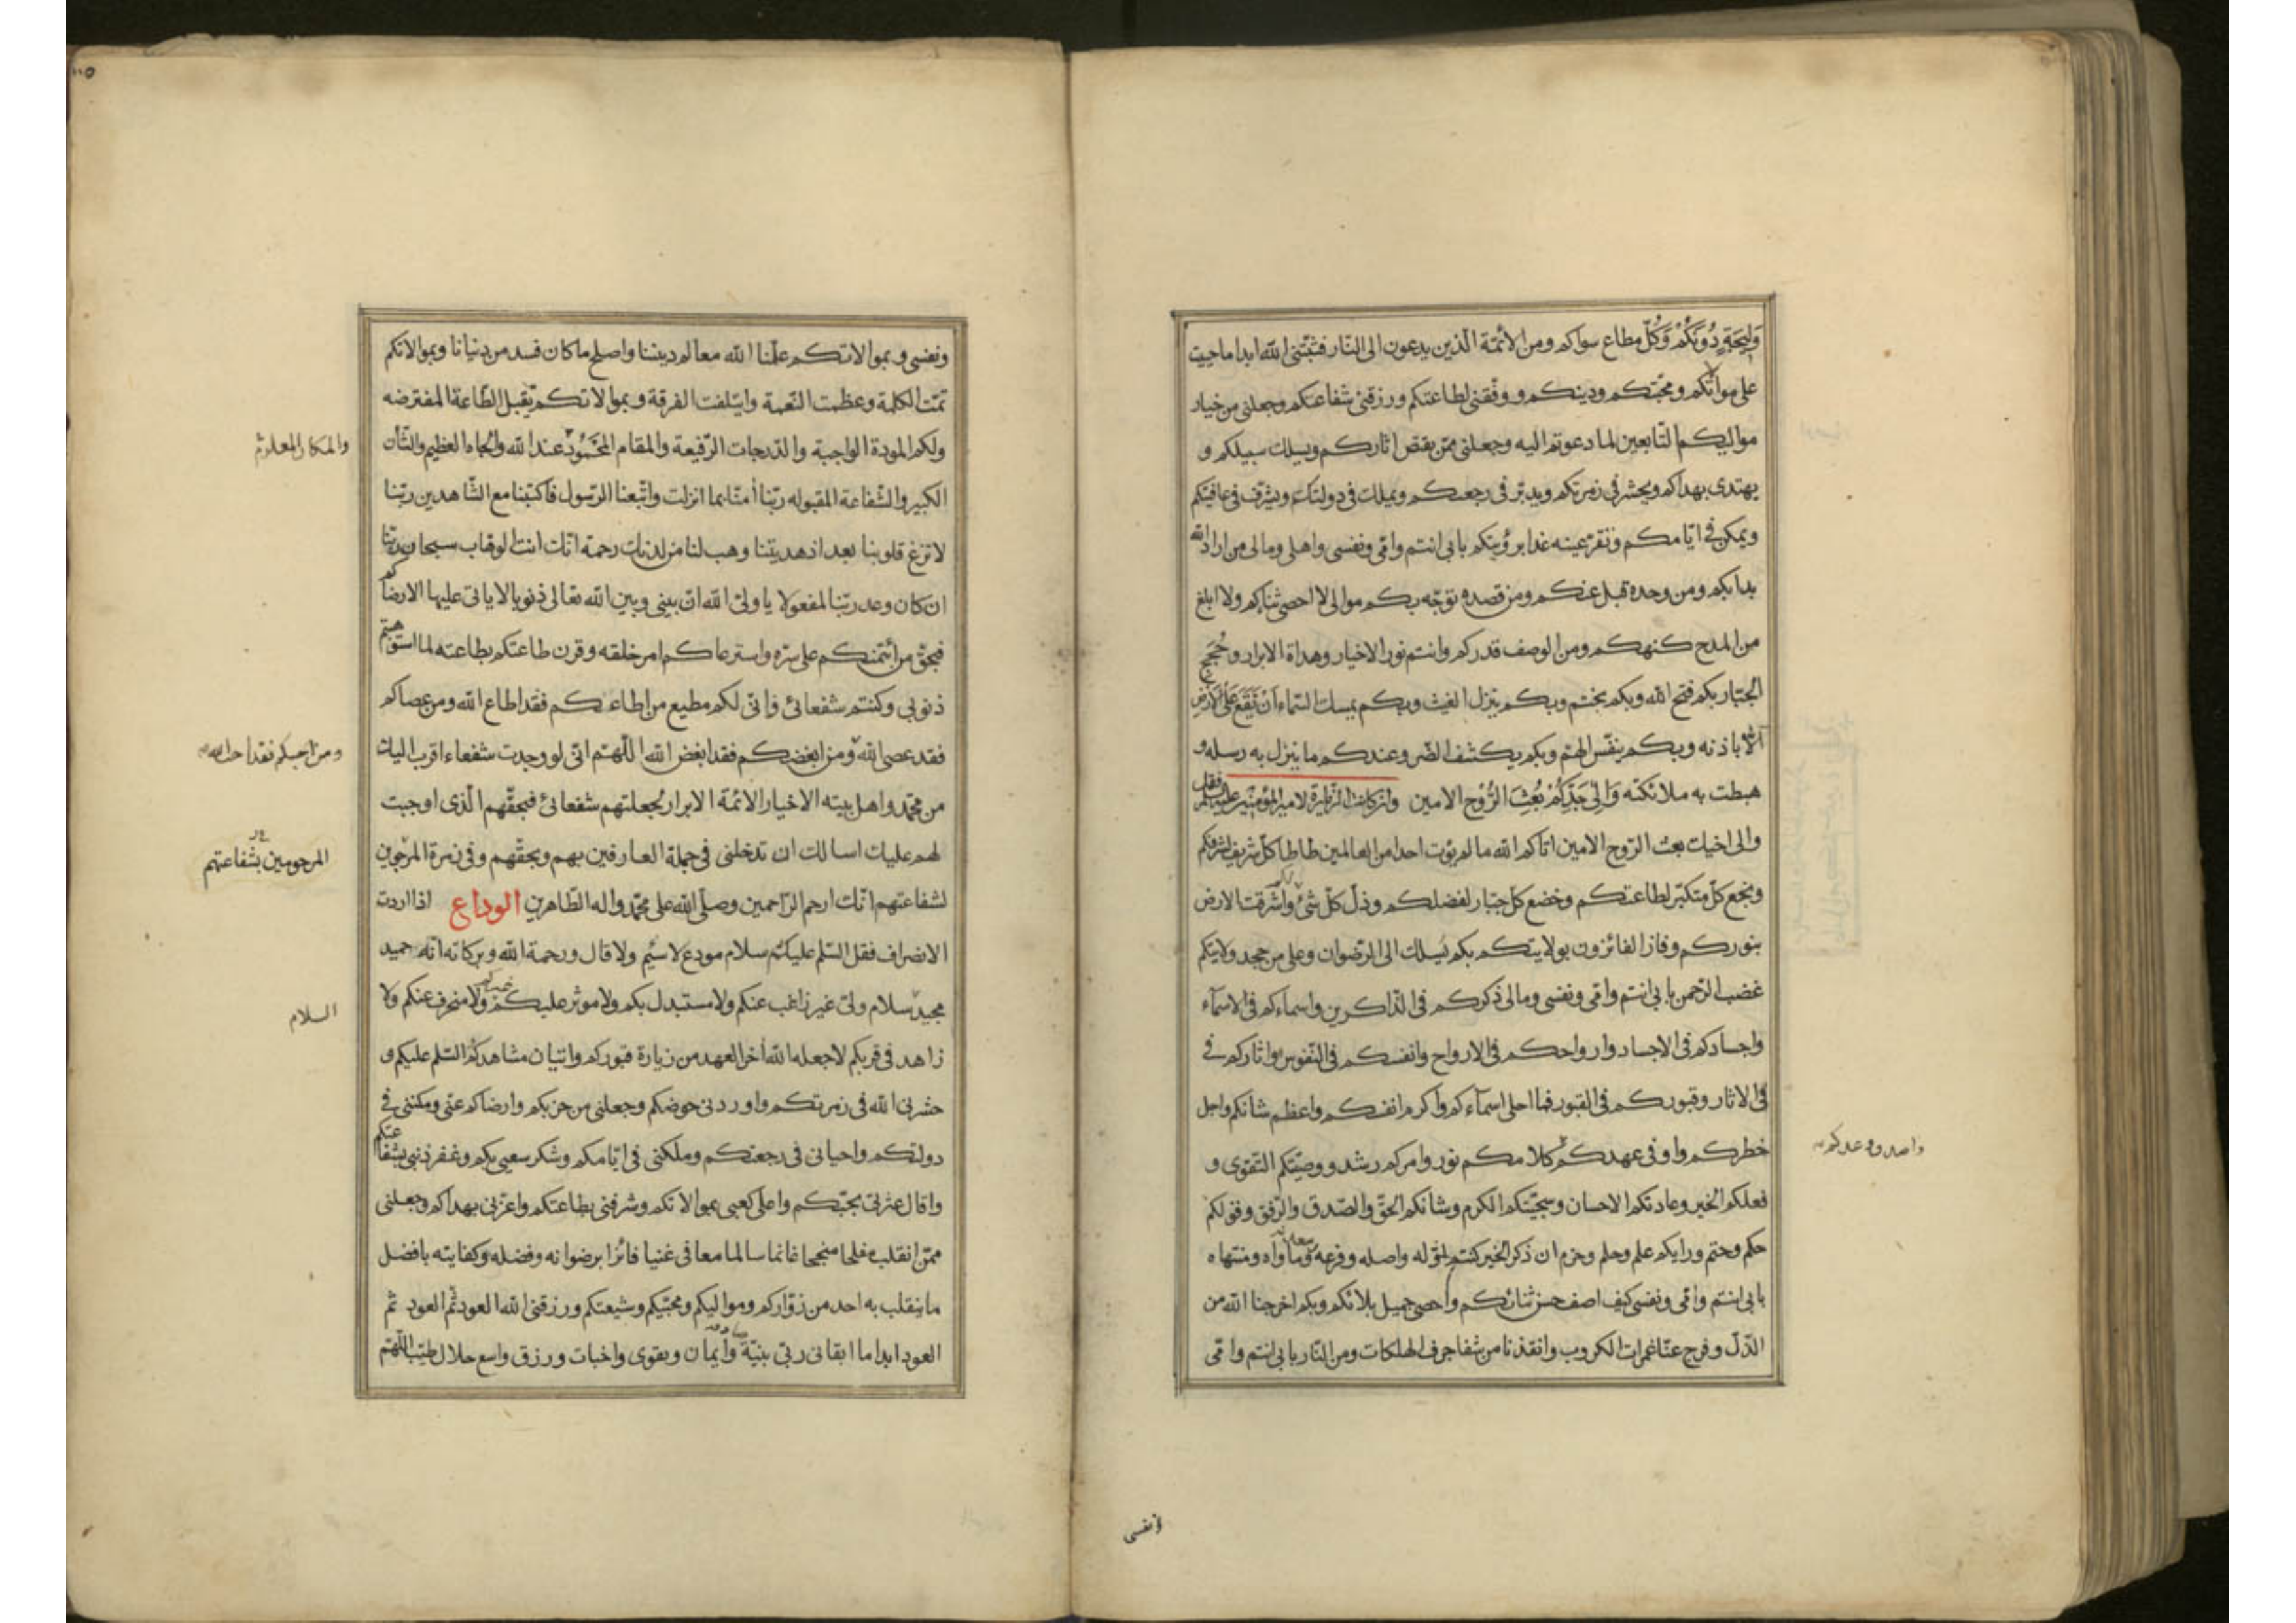 وَلِيجَةٍ دُونَكُمْ وَكُلّ مطاع سواكم ومن الائمّة الّذين يدعون الى النّار فثبّتنى الله ابدا ما حييت
على موالاتكم ومحبّتكم ودينكم ووفّقنى لطاعتكم ورزقنى شفاعتكم وجعلنى من خيار
مواليكم التّابعين لما دعوتم اليه وجعلنى ممّن يقتص اثاركم ويسلك سبيلكم و
يهتدى بهداكم ويحشر فى زمرتكم ويكرّ فى رجعتكم ويملك فى دولتكم ويشرّف فى عافيتكم
ويمكن فى ايّامكم وتقرّ عينه غدا برؤيتكم بابى انتم وامّى ونفسى واهلى ومالى من اراد الله
بدا بكم ومن وحده قبل عنكم ومن قصده توجّه بكم موالى لا احصى ثناءكم ولا ابلغ
من المدح كنهكم ومن الوصف قدركم وانتم نور الاخيار وهداة الابرار وحُجَج
الجبّار بكم فتح الله وبكم يختم وبكم ينزل الغيث وبكم يمسك السّماء اَنْ تَقَعَ عَلَى الْاَرْضِ
الّا باذنه وبكم ينفّس الهمّ وبكم يكشف الضّر وعندكم ما ينزل به رسله و
هبطت به ملائكته وَاِلىٰ جَدِّكُمْ بُعِثَ الرُّوْح الامين وان كانت الزيارة لامير المؤمنين عليه السلام فقل
والى اخيك بعث الرّوح الامين اتاكم الله ما لم يؤت احدا من العالمين طاطا كلّ شريف لشرفكم
وبخع كلّ متكبّر لطاعتكم وخضع كلّ جبّار لفضلكم وذلّ كلّ شئ لكم واشرقت الارض
بنوركم وفاز الفائزون بولايتكم بكم يُسلك الى الرّضوان وعلى من جحد ولايتكم
غضب الرّحمن بابى انتم وامّى ونفسى ومالى ذكركم فى الذّاكرين واسماءكم فى الاسمآء
واجسادكم فى الاجساد وارواحكم فى الارواح وانفسكم فى النّفوس واثاركم فى
فى الاثار وقبوركم فى القبور فما احلى اسمآءكم واكرم انفسكم واعظم شانكم واجل
خطركم واوفى عهدكم كلامكم نور وامركم رشد ووصيّتكم التّقوى و
واصدق وعدكم
فعلكم الخير وعادتكم الاحسان وسجيّتكم الكرم وشانكم الحقّ والصّدق والرّفق وقولكم
حكم وحتم ورايكم علم وحلم وحزم ان ذكر الخير كنتم اوّله واصله وفرعه ومعدنه وماواه ومنتهاه
بابى انتم وامّى ونفسى كيف اصف حسن ثنائكم واحصى جميل بلائكم وبكم اخرجنا الله من
الذّلّ وفرج عنّا غمرات الكروب وانقذنا من شفا جرف الهلكات ومن النّار بابى انتم وامّى
ونفسى
ونفسى وبموالاتكم علّمنا الله معالم ديننا واصلح ما كان فسد من دنيانا وبموالاتكم
تمّت الكلمة وعظمت النّعمة وايتلفت الفرقة وبموالاتكم تقبل الطّاعة المفترضه
ولكم المودة الواجبة والدّرجات الرّفيعة والمقام المَحْمُود عند الله والجاه العظيم والشّأن
والمكان المعلوم
الكبير والشّفاعة المقبوله ربّنا أمنّا بما انزلت واتّبعنا الرّسول فاكتبنا مع الشّاهدين ربّنا
لا تزغ قلوبنا بعد اذ هديتنا وهب لنا من لدنك رحمة انّك انت الوهاب سبحان ربّنا
ان كان وعد ربّنا لمفعولا يا ولىّ الله انّ بينى وبين الله تعالى ذنوبا لا ياتى عليها الا رضاكم
فبحقّ من ائتمنكم على سرّه واسترعاكم امر خلقه وقرن طاعتكم بطاعته لما استوهبتم
ذنوبى وكنتم شفعائى فانّى لكم مطيع من اطاعكم فقد اطاع الله ومن عصاكم
فقد عصى الله ومن ابغضكم فقد ابغض الله اللّهمّ انّى لو وجدت شفعاء اقرب اليك
ومن احبكم فقد احب الله
من محمّد واهل بيته الاخيار الائمّة الابرار لجعلتهم شفعائى فبحقّهم الّذى اوجبت
لهم عليك اسالك ان تدخلنى فى جملة العارفين بهم وبحقّهم وفى زمرة المرجوين
المرحومين بشفاعتهم
لشفاعتهم انّك ارحم الرّاحمين وصلّى الله على محمّد واله الطّاهرين الوداع اذا اردت
الانصراف فقل السّلم عليكم سلام مودع لا سئم ولا قال ورحمة الله وبركاته انّه حميد
مجيد سلام ولىّ غير راغب عنكم ولا مستبدل بكم ولا موثر عليكم ولا منحرف عنكم ولا
السلام
زاهد فى قربكم لا جعله الله أخر العهد من زيارة قبوركم واتيان مشاهدكم السّلم عليكم و
حشرنى الله فى زمرتكم واوردنى حوضكم وجعلنى من حزبكم وارضاكم عنّى ومكننى فى
دولتكم واحيانى فى رجعتكم وملكنى فى ايّامكم وشكر سعيى بكم وغفر ذنبى بشفاعتكم
واقال عثرتى بحبّكم واعلى كعبى بموالاتكم وشرفنى بطاعتكم واعزّنى بهداكم وجعلنى
ممّن انقلب مفلحا منجحا غانما سالما معافى غنيا فائزا برضوانه وفضله وكفايته بافضل
ما ينقلب به احد من زوّاركم ومواليكم ومحبّيكم وشيعتكم ورزقنى الله العود ثمّ العود ثم
العود ابدا ما ابقانى ربّى بنيّة وايمان وتقوى واخبات ورزق واسع حلال طيّب اللّهمّ